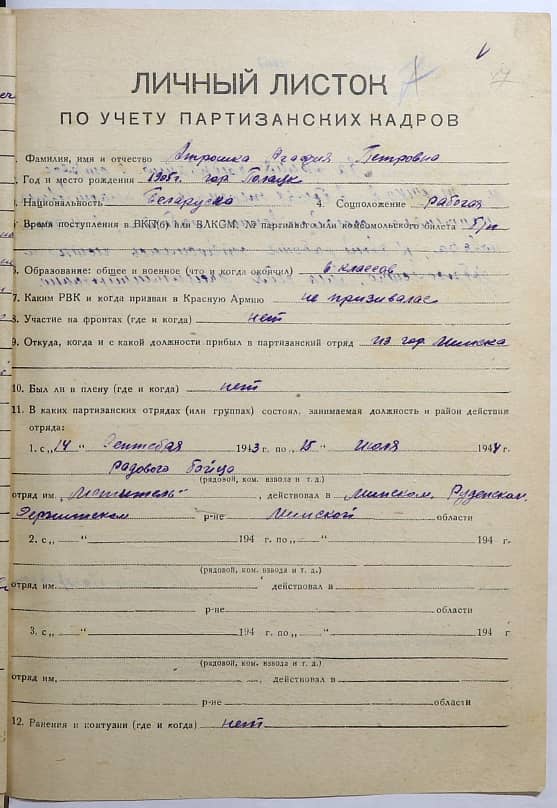 ЛИЧНЫЙ ЛИСТОК
ПО УЧЕТУ ПАРТИЗАНСКИХ КАДРОВ
Фамилия, имя и отчество Атрошка Агафия Петровна
Год и место рождения 1908 г. гор Полацк
Национальность Беларуска 4. Соцположение рабочая
Время поступления в ВКП(б) или ВЛКСМ, № партийного или комсомольского билета б/п
6. Образование: общее и военное (что и когда окончил) 6 классов
7. Каким РВК и когда призван в Красную Армию не призивалас
8. Участие на фронтах (где и когда) нет
9. Откуда, когда и с какой должности прибыл в партизанский отряд из гор Минска
10. Был ли в плену (где и когда) нет
11. В каких партизанских отрядах (или группах) состоял, занимаемая должность и район действия
отряда:
1. с „14 “ Сентебая 1943 г. по „15 “ Июля 1944 г.
радового бойца
(рядовой, ком. взвода и т. д.)
отряд им. „Мститель“, действовал в Минском, Руденском,
р-не Минской области
2. с „ “ 194 г. по „ “ 194 г.
(рядовой, ком. взвода и т. д.)
отряд им. действовал в
р-не области
3. с „ “ 194 г. по „ “ 194 г
(рядовой, ком. взвода и т. д.)
отряд им. , действовал в
р-не области
12. Ранения и контузии (где и когда) нет